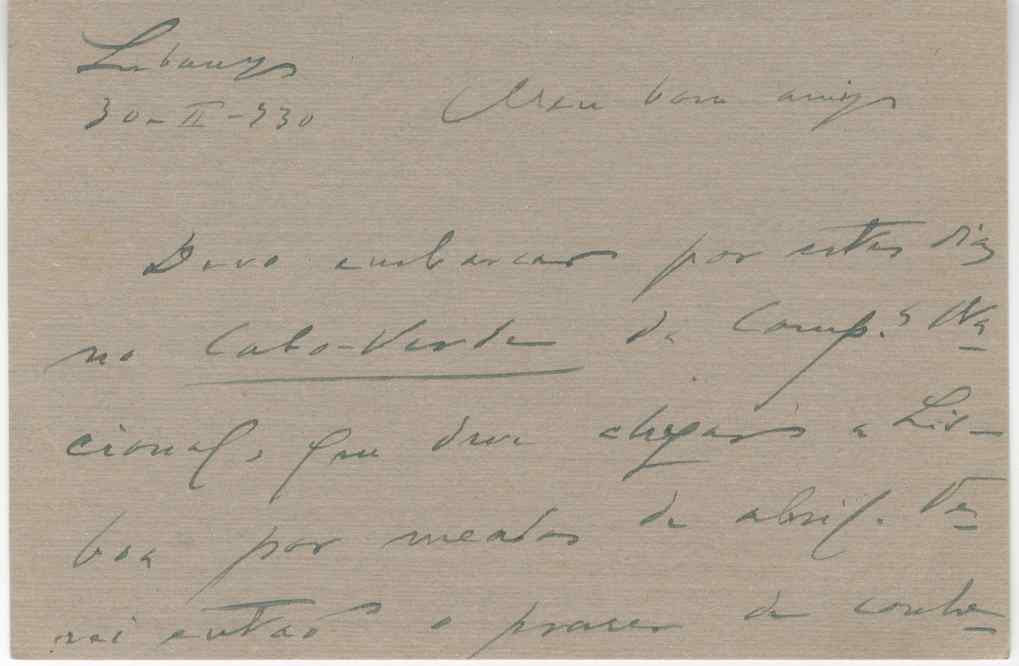 Lubango
30-II-930
Meu bom amigo
Devo embarcar por estes dias
no Cabo-Verde da Comp.ª Na
cional, que deve chegar a Lis-
boa por meados de abril. Te
rei então o prazer de conhe